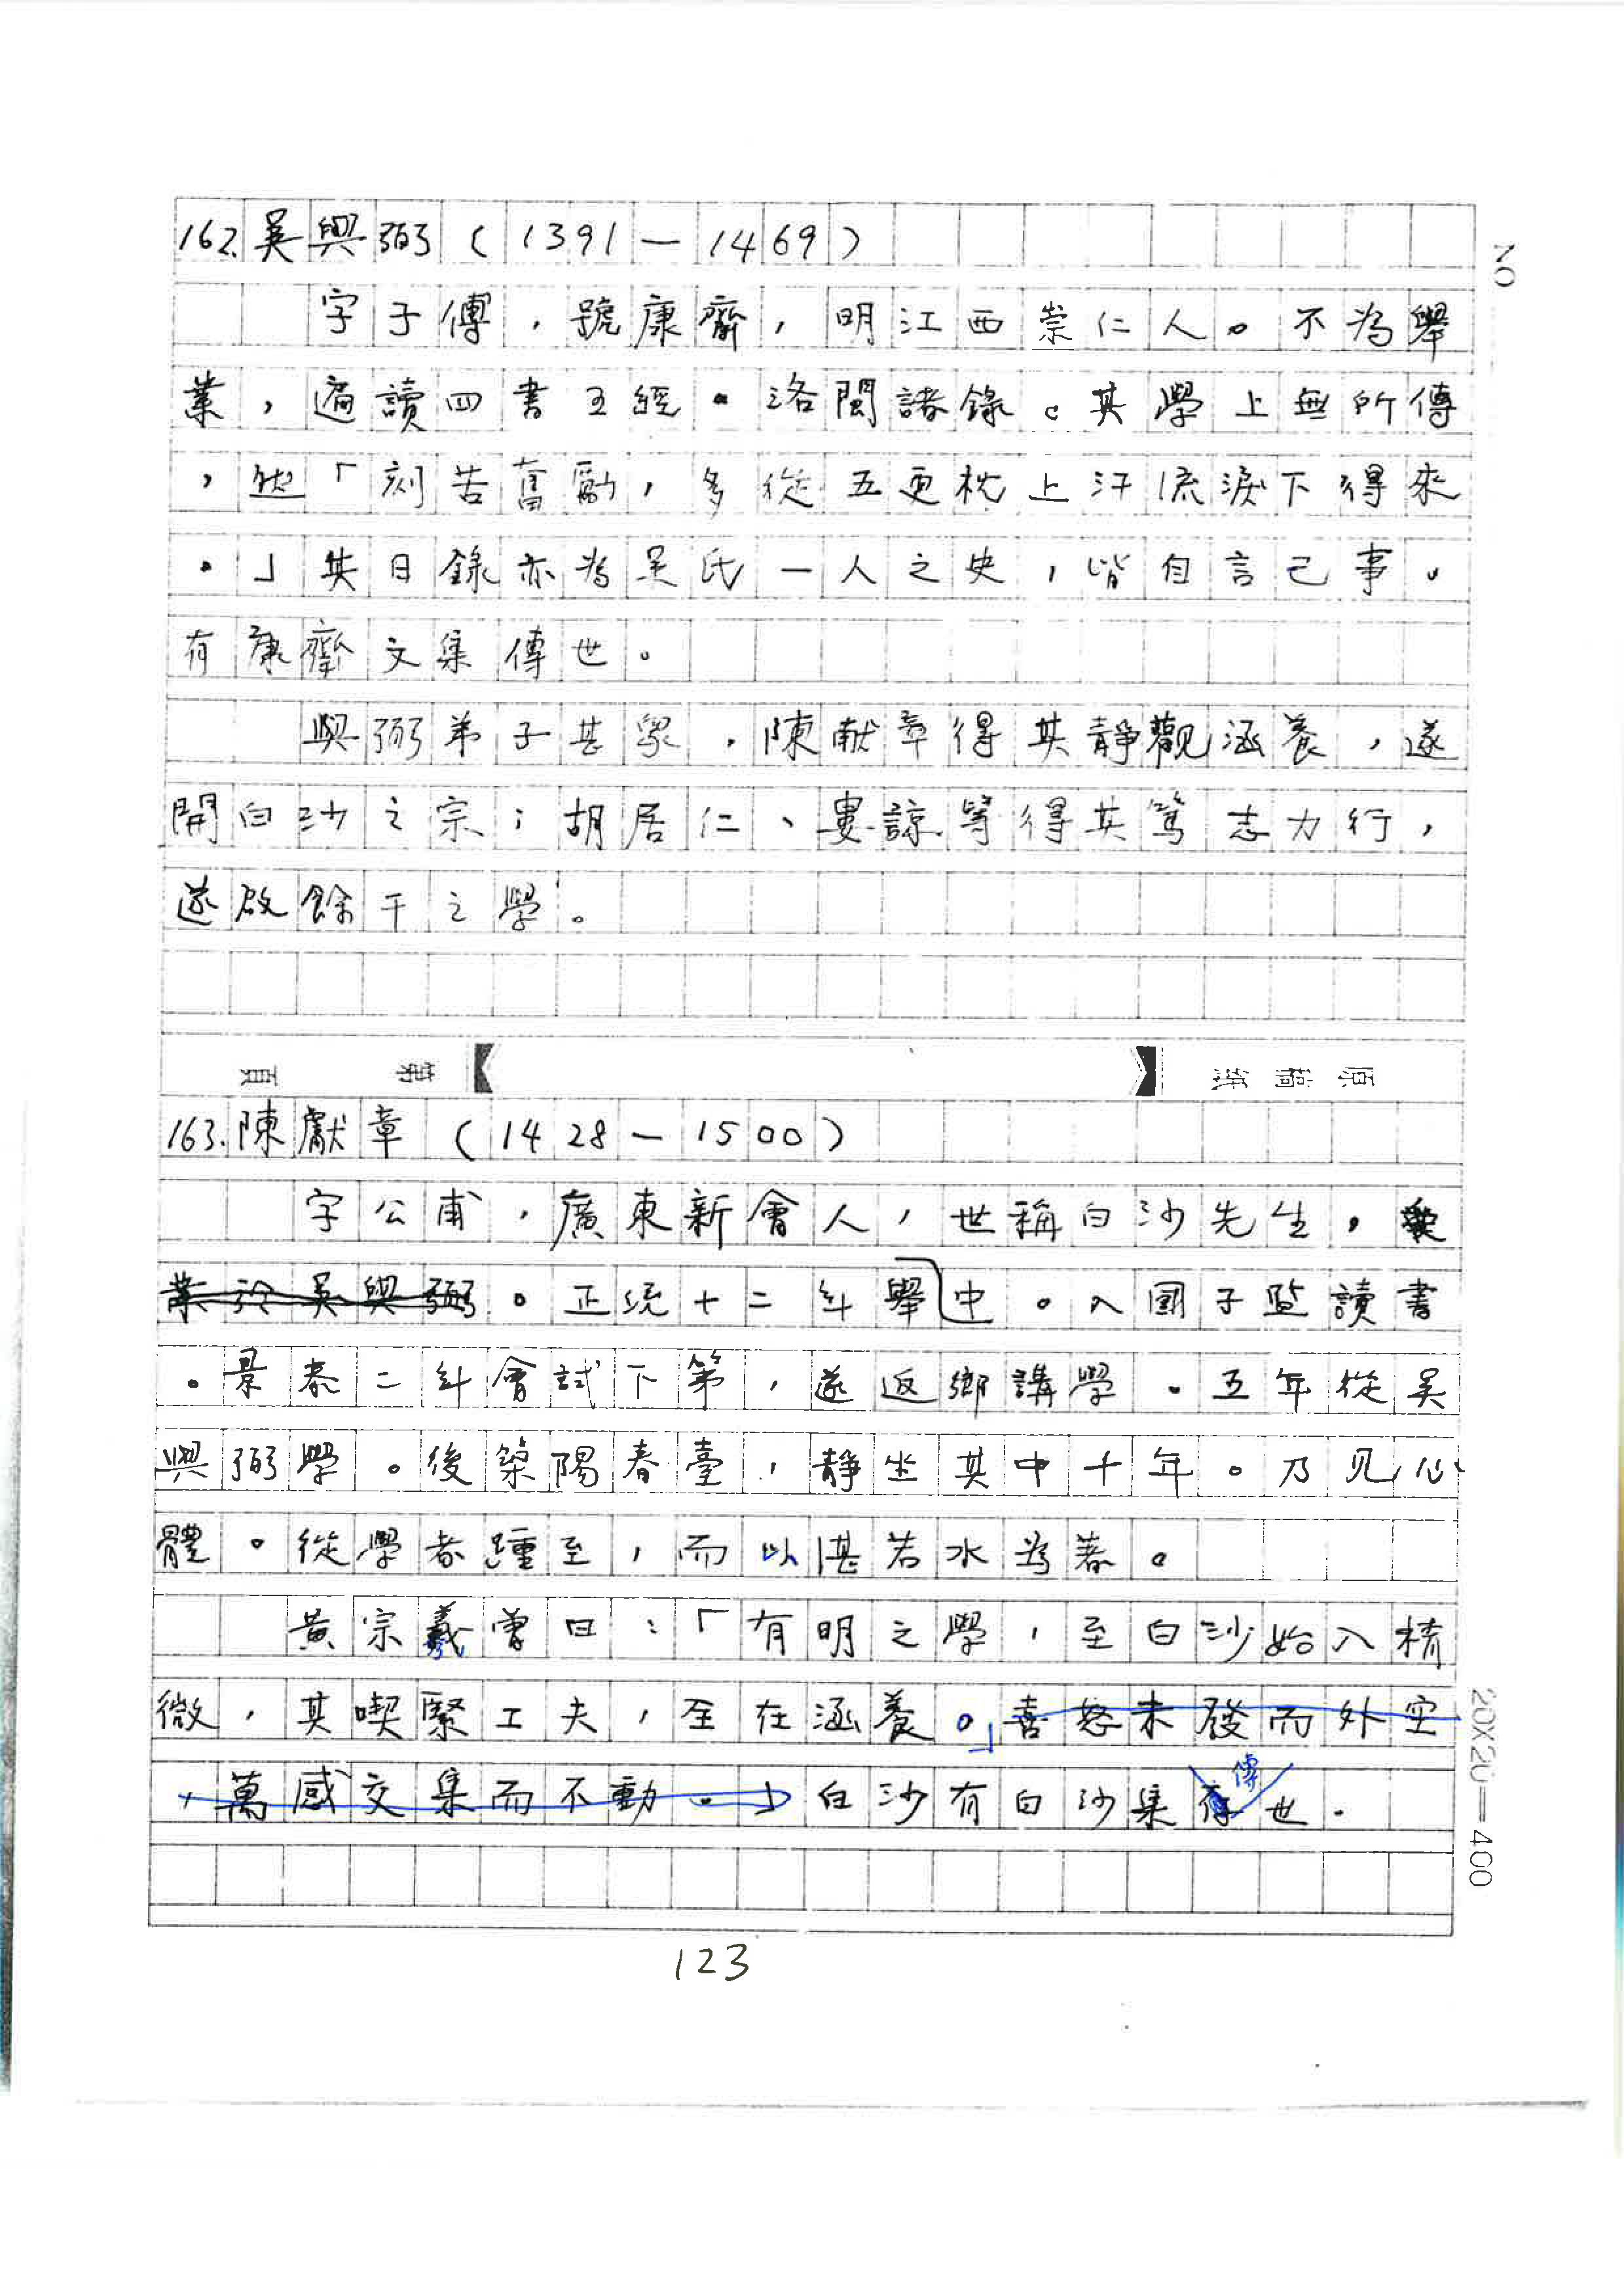 162.吳與弼(1391—1469)
字子傅,號康齋,明江西崇仁人。不為舉
業,遍讀四書五經。洛閩諸錄。其學上無所傳
,然「刻苦奮勵,多從五更枕上汗流淚下得來
。」其日錄亦為吳氏一人之史,皆自言己事。
有康齋文集傳世。
與弼弟子甚眾,陳献章得其靜觀涵養,遂
開白沙之宗;胡居仁、婁諒等得其篤志力行,
遂啟餘干之學。
頁 第 原稿紙
163.陳獻章(1428—1500)
字公甫,廣東新會人,世稱白沙先生,受
業於吳與弼。正統十二年舉中。入國子監讀書
。景泰二年會試下第,遂返鄉講學。五年從吳
與弼學。後築陽春臺,靜坐其中十年。乃見心
體。從學者踵至,而以湛若水為著。
黃宗羲曾曰:「有明之學,至白沙始入精
微,其喫緊工夫,全在涵養。」喜怒未發而外空
,萬感交集而不動。」白沙有白沙集傳世。
20X20=400
123